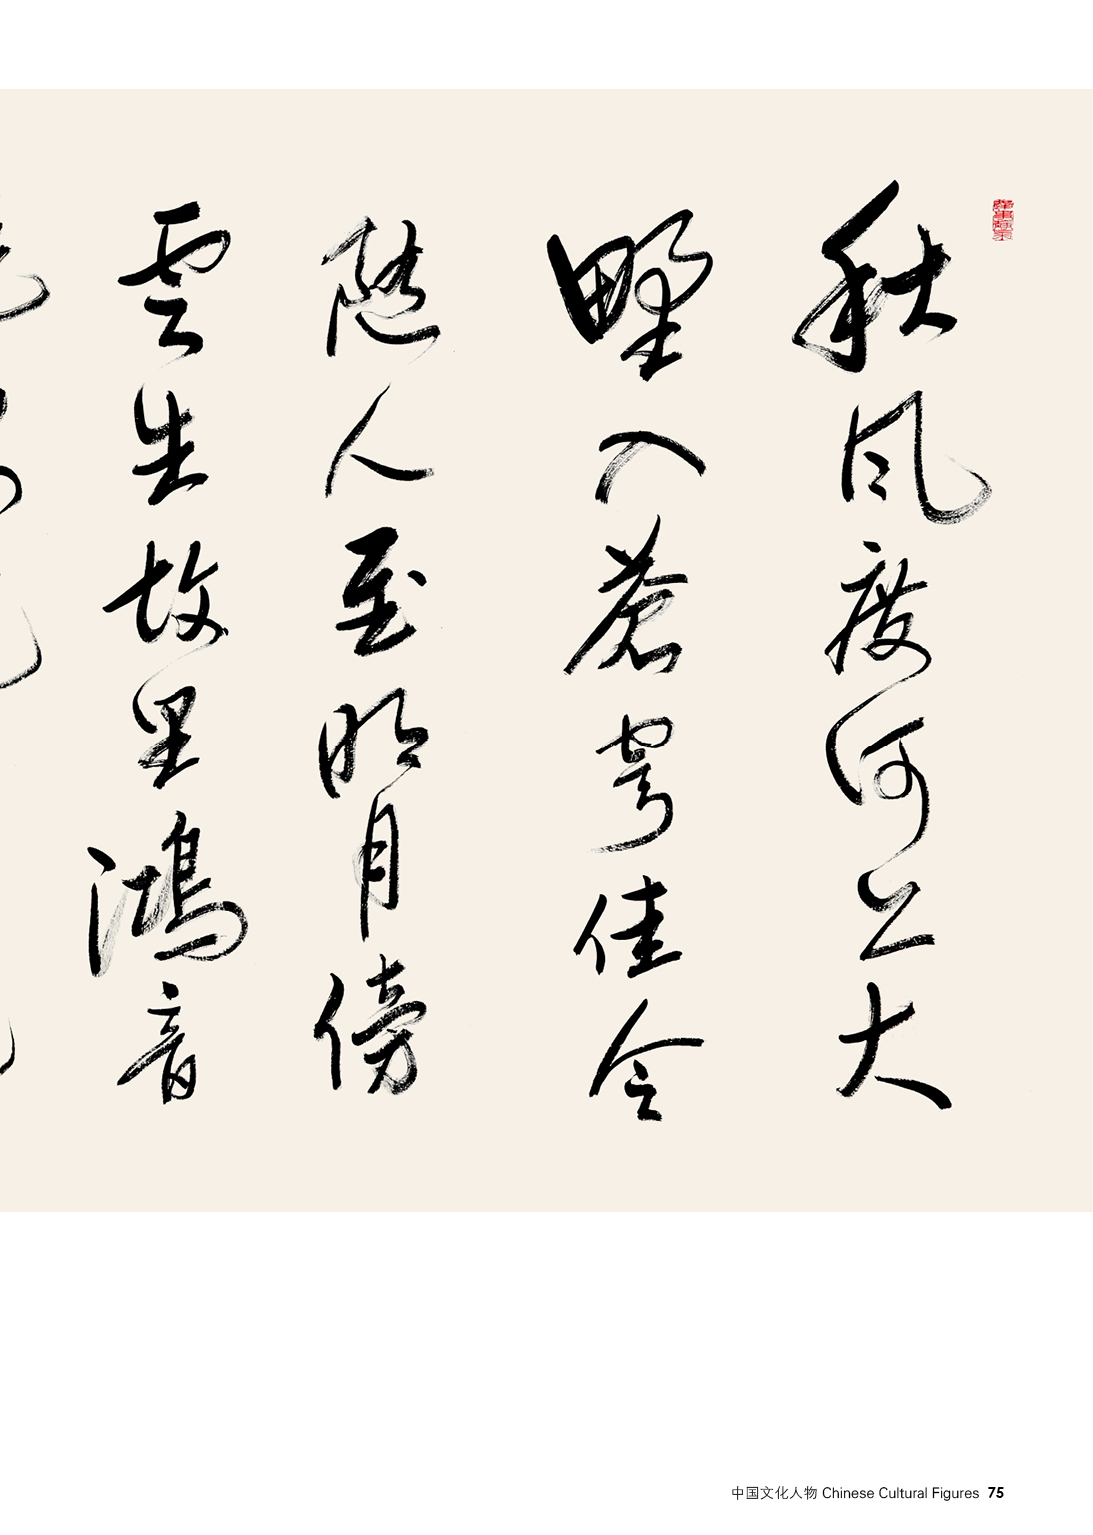 秋风度河上大
野入苍穹佳令
随人至明月傍
云生故里鸿音
中国文化人物 Chinese Cultural Figures 75